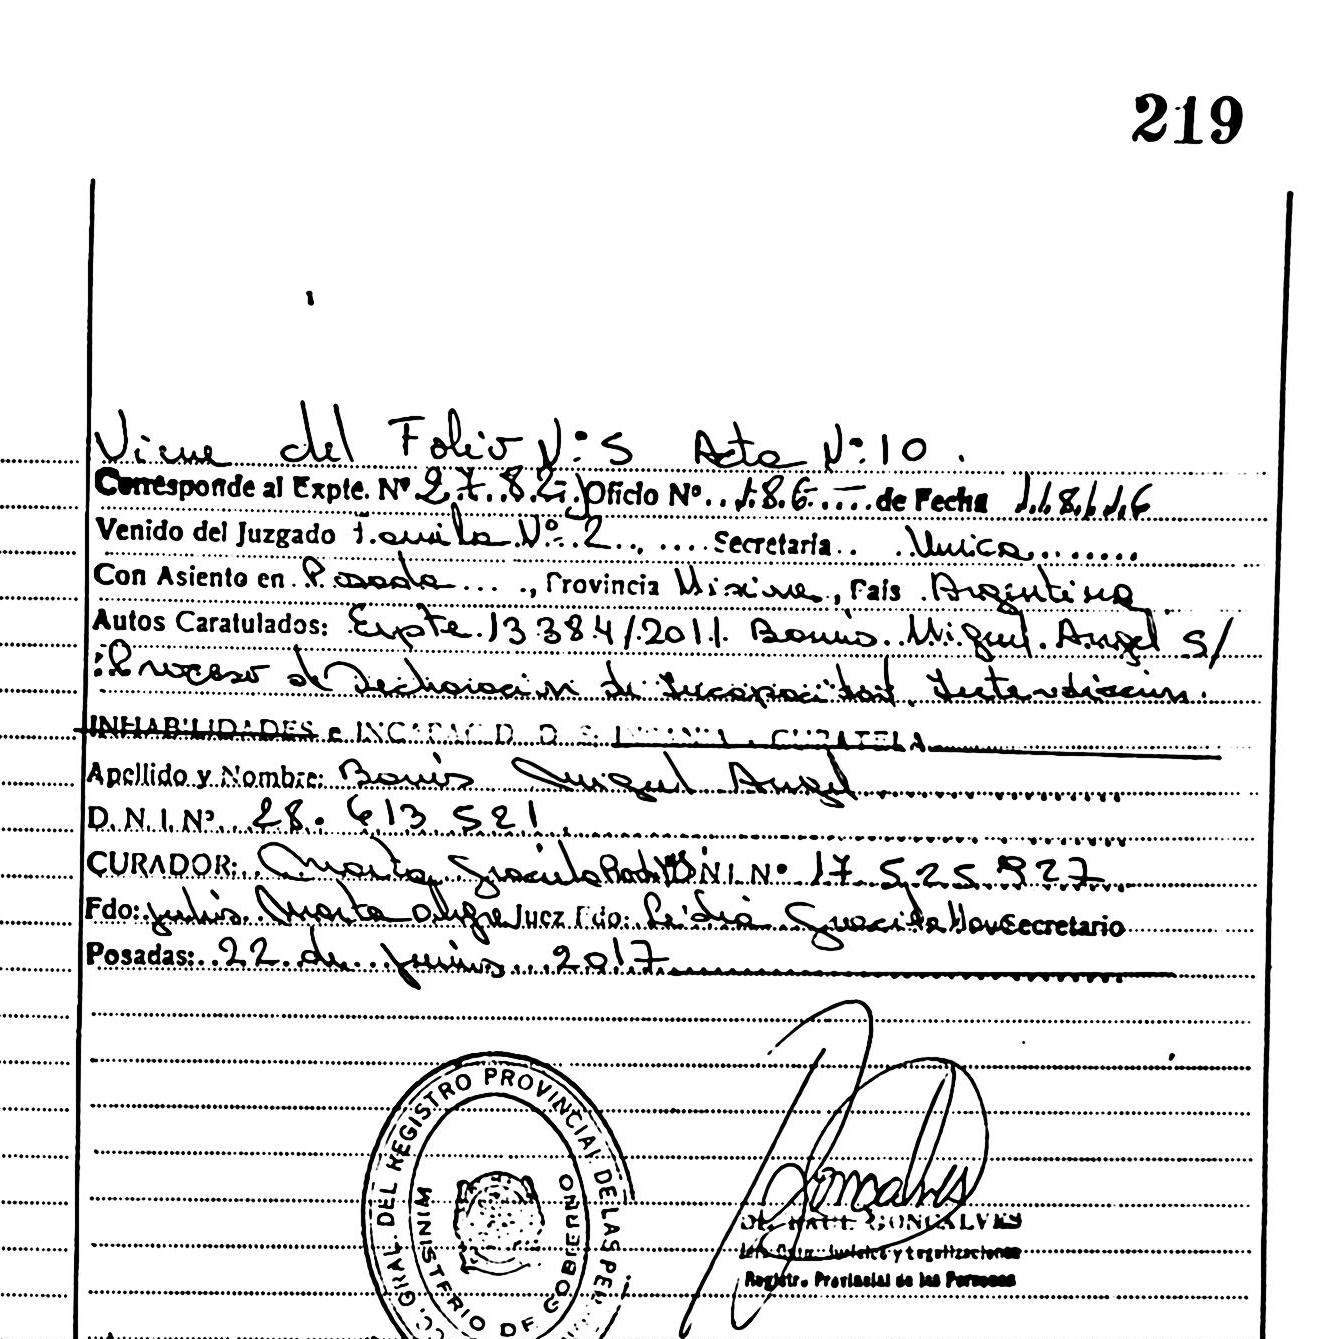 219
Viene del Folio Nº: 5 Acta Nº: 10.
Corresponde al Expte. Nº 2782 Oficio Nº 186 de Fecha 1/8/16
Venido del Juzgado Familia Nº 2, Secretaria Unica
Con Asiento en Posadas, Provincia Misiones, País Argentina
Autos Caratulados: Expte 13384/2011 Miguel Angel S/
Proceso de Declaración de Incapacidad
INHABILIDADES e CURATELA
Apellido y Nombre: Miguel Angel
D.N.I.Nº 28.613521
CURADOR: Marta Graciela D.N.I.Nº 17.525.927
Fdo: Marta Juez Fdo: Graciela Secretario
Posadas: 22 de junio 2017
GRAL. DEL REGISTRO PROVINCIAL DE LAS PER
MINISTERIO DE GOBIERNO
Goncalves
RAUL GONCALVES
Jurídico y Legalizaciones
Registro Provincial de las Personas